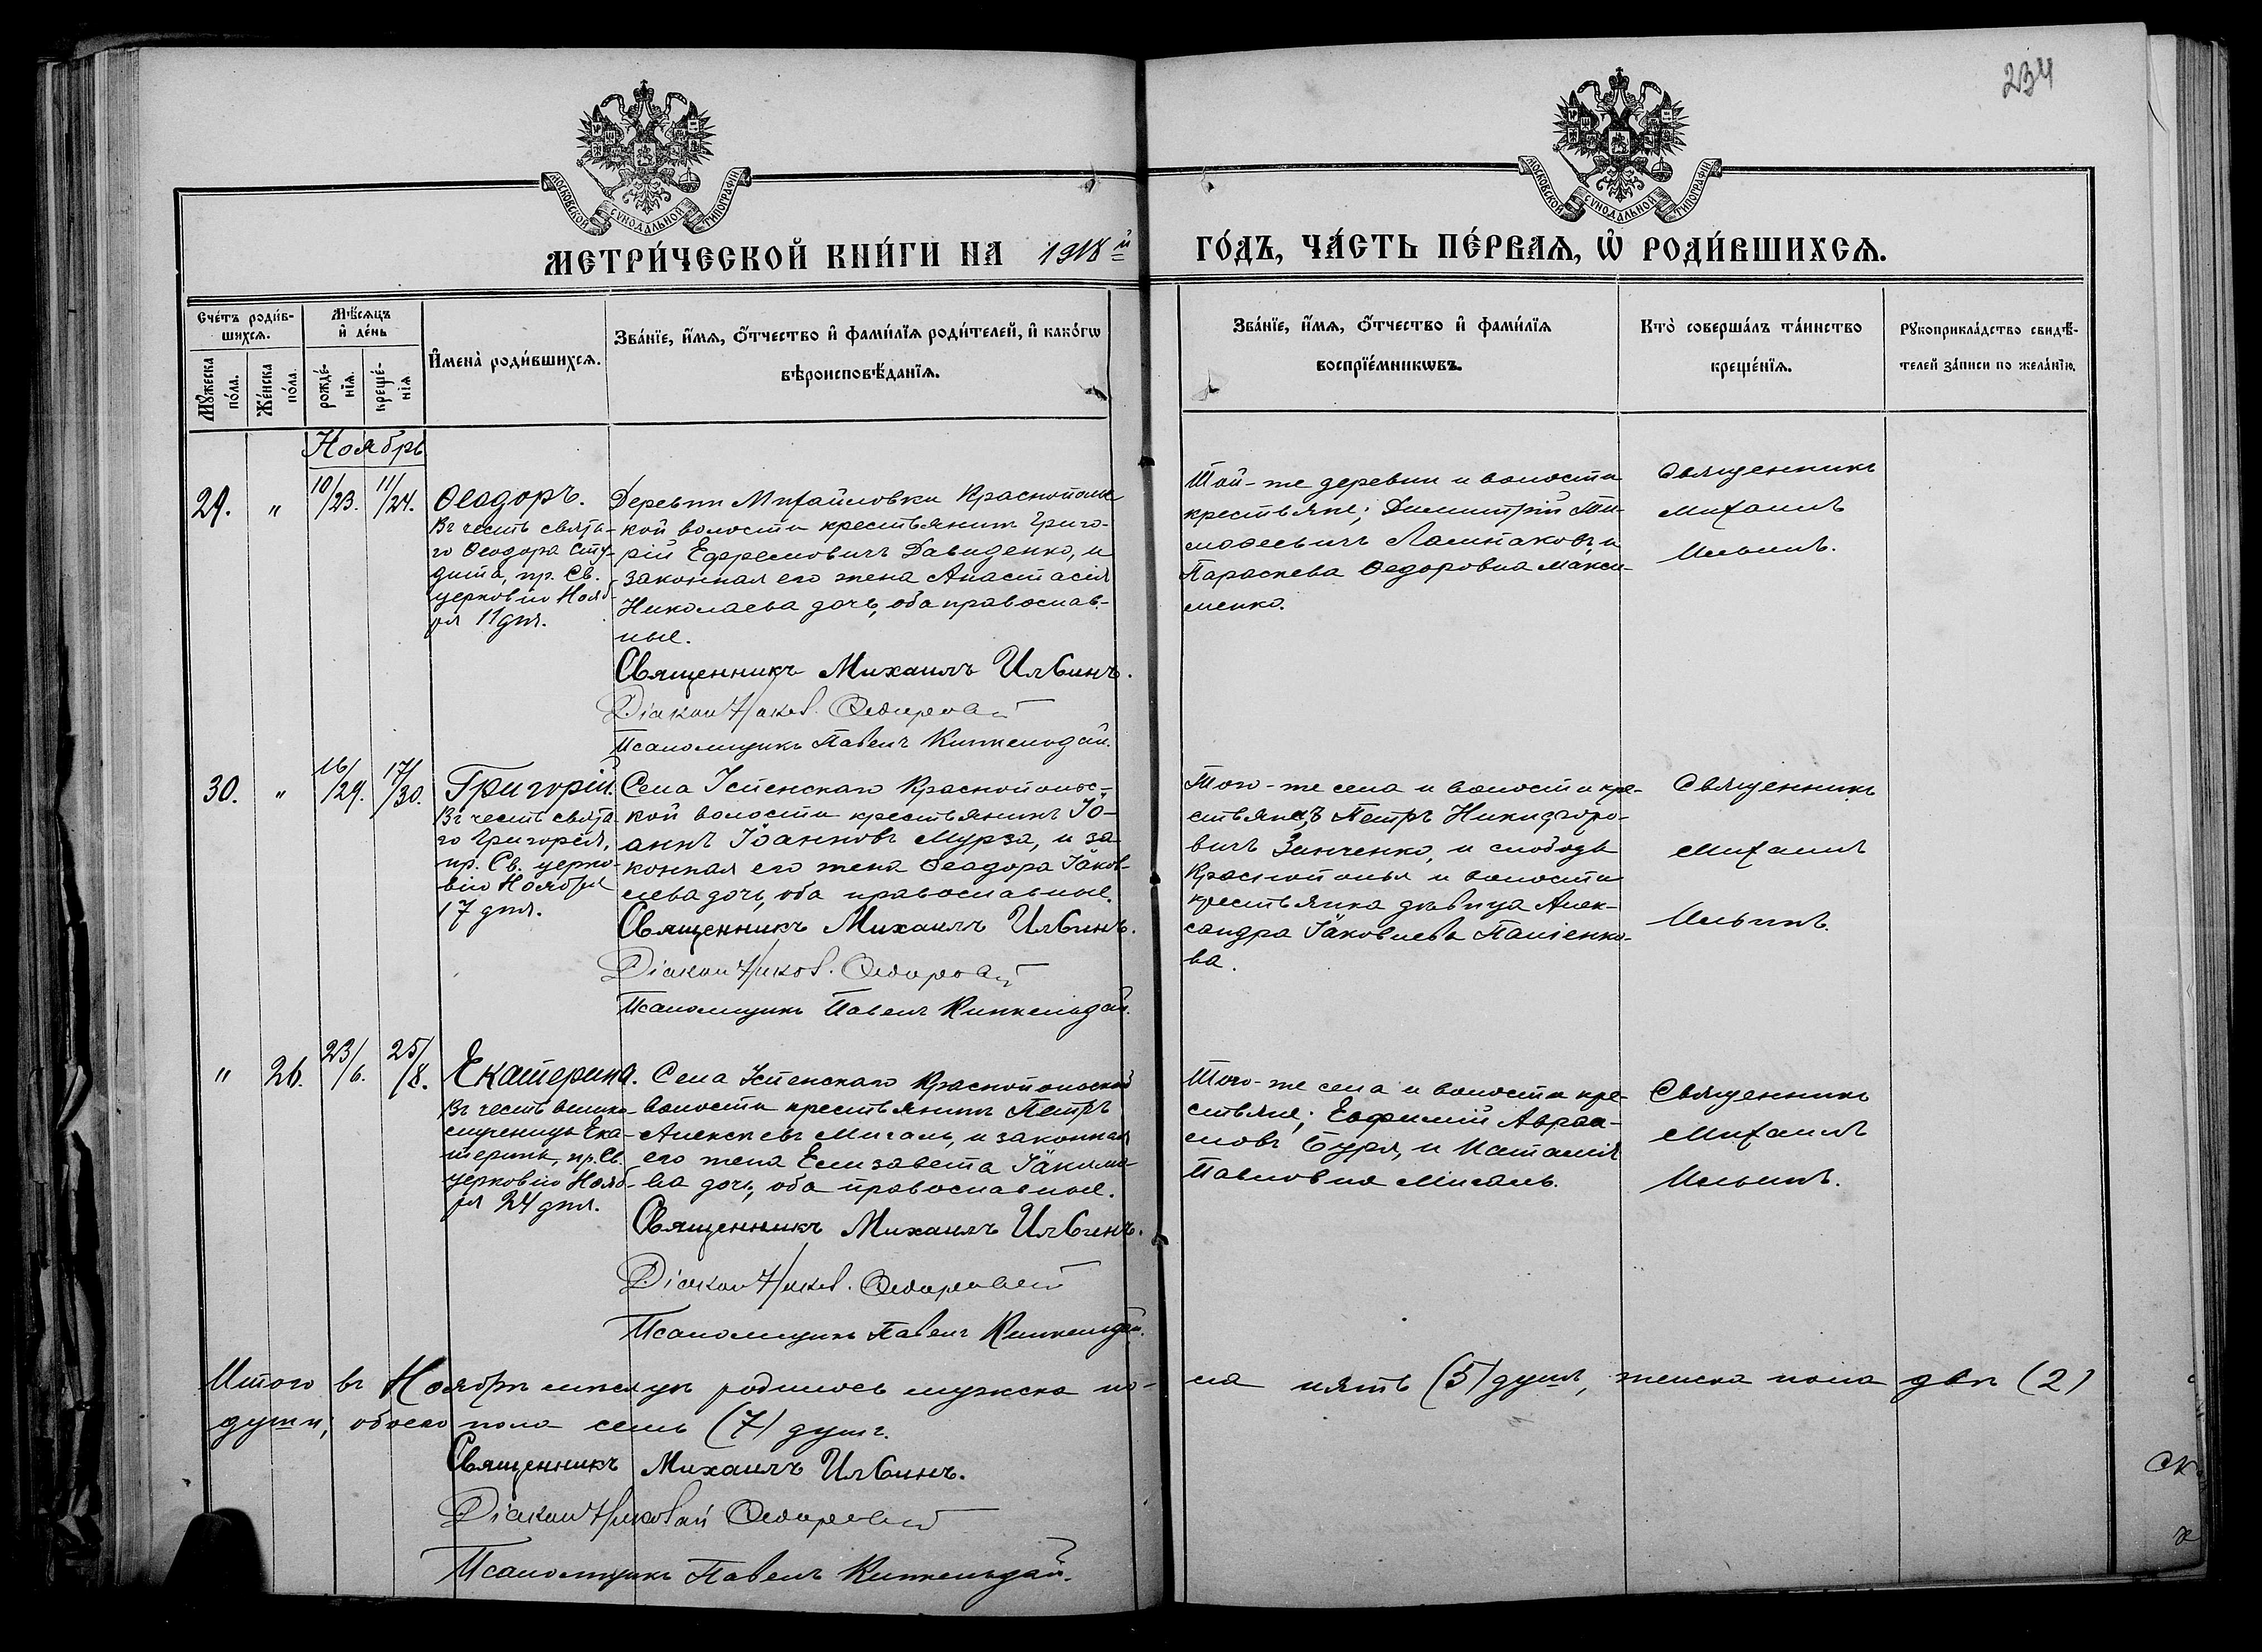 234
МОСКОВСКОЙ СѴНОДАЛЬНОЙ ТИПОГРАФІИ
МОСКОВСКОЙ СѴНОДАЛЬНОЙ ТИПОГРАФІИ
МЕТРИ́ЧЕСКОЙ КНИ́ГИ НА 1918й ГО́ДЪ, ЧА́СТЬ ПЕ́РВАѦ, Ѡ҆ РОДИ́ВШИХСѦ.
Сче́тъ роди́в-
шихсѧ.
Мꙋ́жеска по́ла.
Же́нска по́ла.
Мѣ́сѧцъ и҆ де́нь
рожде́-нїѧ.
креще́-нїѧ
И҆мена̀ роди́вшихсѧ.
Зва́нїе, и҆́мѧ, ѻ҆́тчество и҆ фами́лїѧ роди́телей, и҆ како́гѡ
вѣроисповѣ́данїѧ.
Зва́нїе, и҆́мѧ, ѻ҆́тчество и҆ фами́лїѧ
воспрїе́мникѡвъ.
Кто̀ соверша́лъ та́инство
креще́нїѧ.
Рꙋкоприкла́дство свидѣ́-
телей за́писи по жела́нїю.
Ноябрь
29. " 10/23. 11/24.
Ѳеодоръ.
Въ честь свята-
го Ѳеодора Сту-
дита, пр. Св.
церковію Нояб-
ря 11 дня.
Деревни Михайловки Краснополь-
кой волости крестьянинъ Григо-
рій Ефремовичъ Давиденко, и
законная его жена Анастасія
Николаева дочь, оба православ-
ные.
Священникъ Михаилъ Ильинъ.
Діаконъ Никол.
Псаломщикъ Павелъ Кинкельдай.
Той-же деревни и волости
крестьяне; Димитрій Ти-
мофеевичъ Лаштаковъ, и
Параскева Ѳедоровна Макси-
менко.
Священникъ
Михаилъ
Ильинъ.
30. " 16/29. 17/30.
Григорій.
Въ честь свята-
го Григорія,
пр. Св. церко-
вію Ноября
17 дня.
Села Успенскаго Краснополь-
кой волости крестьянинъ Іо-
аннъ Іоанновъ Мурза, и за-
конная его жена Ѳеодора Іаков-
лева дочь, оба православные.
Священникъ Михаилъ Ильинъ.
Діаконъ Никол.
Псаломщикъ Павелъ Кинкельдай.
Того-же села и волости кре-
стьянинъ Петръ Никифоро-
вичъ Зинченко, и слободы
Краснополья и волости
крестьянка дѣвица Алек-
сандра Іаковлева Пащенко-
ва.
Священникъ
Михаилъ
Ильинъ.
" 26. 23/6. 25/8.
Екатерина.
Въ честь велико-
мученицы Ека-
терины, пр. Св.
церковію Нояб-
ря 24 дня.
Села Успенскаго Краснопольской
волости крестьянинъ Петръ
Алексѣевъ Мисаль, и законная
его жена Елизавета Іакимо-
ва дочь, оба православные.
Священникъ Михаилъ Ильинъ.
Діаконъ Никол.
Псаломщикъ Павелъ Кинкельдай.
Того-же села и волости кре-
стьяне; Евфимій Авраа-
мовъ Буря, и Наталія
Павловна Мисаль.
Священникъ
Михаилъ
Ильинъ.
Итого въ Ноябрѣ мѣсяцѣ родилось мужска по- ла пять (5) душъ, женска пола двѣ (2)
души, обоего пола семь (7) душъ.
Священникъ Михаилъ Ильинъ.
Діаконъ Николай
Псаломщикъ Павелъ Кинкельдай.